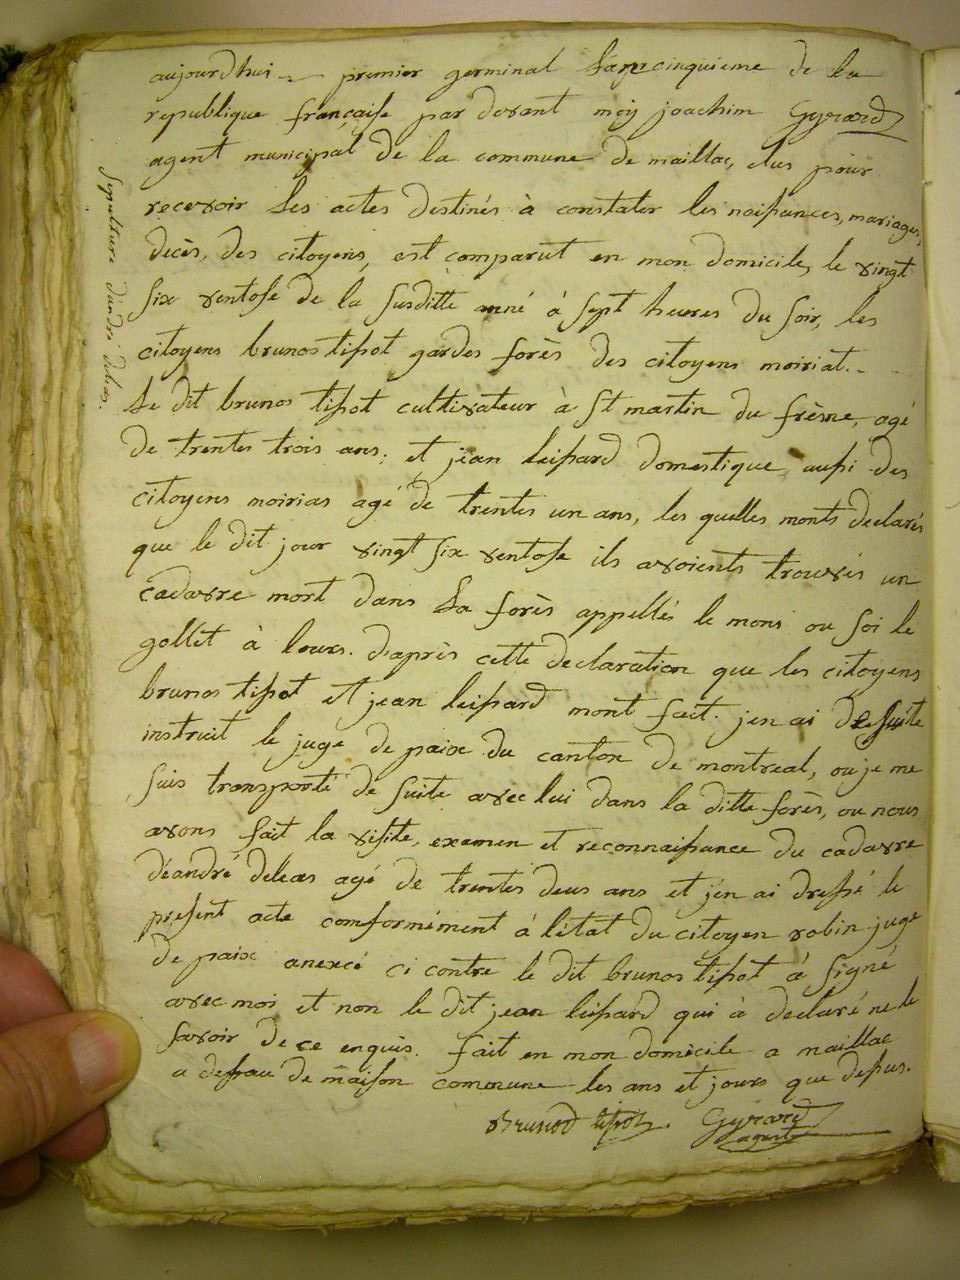 aujourdhui premier germinal Lan cinquieme de la
republique française par devant moy joachim Gyrard
agent municipal de la commune de maillac, elus pour
recevoir Les actes destinés à constater les naissances, mariages,
decès, des citoyens, est comparut en mon domicile, le vingt
six ventose de la susditte anné à sept heures du soir, les
citoyens brunos tissot gardes forès des citoyens moiriat.
Le dit brunos tissot cultivateur à St martin du frèsne, agé
de trentes trois ans; et jean leissard domestique aussi des
citoyens moirias agé de trentes un ans, les quelles monts declarés
que le dit jour vingt six ventose ils avoients trouvés un
cadavre mort dans La forès appellés le mons ou soi le
gollet à lours. daprès cette declaration que les citoyens
brunos tissot et jean leissard mont fait. jen ai de suite
instruit le juge de paix du canton de montreal, ou je me
suis transporté de suite avec lui dans la ditte forès, ou nous
avons fait la visite, examen et reconnaissance du cadavre
déandré deleas agé de trentes deus ans et jen ai dressé le
present acte comformément à létat du citoyen robin juge
de paix anexcé ci contre le dit brunos tissot à signé
avec moi et non le dit jean leissard qui à declaré ne le
savoir de ce enquis. fait en mon domicile a maillac
a defau de maison commune les ans et jours que dessus.
Brunod tissot. Gyrard
agent
Sepulture dandré deleas.